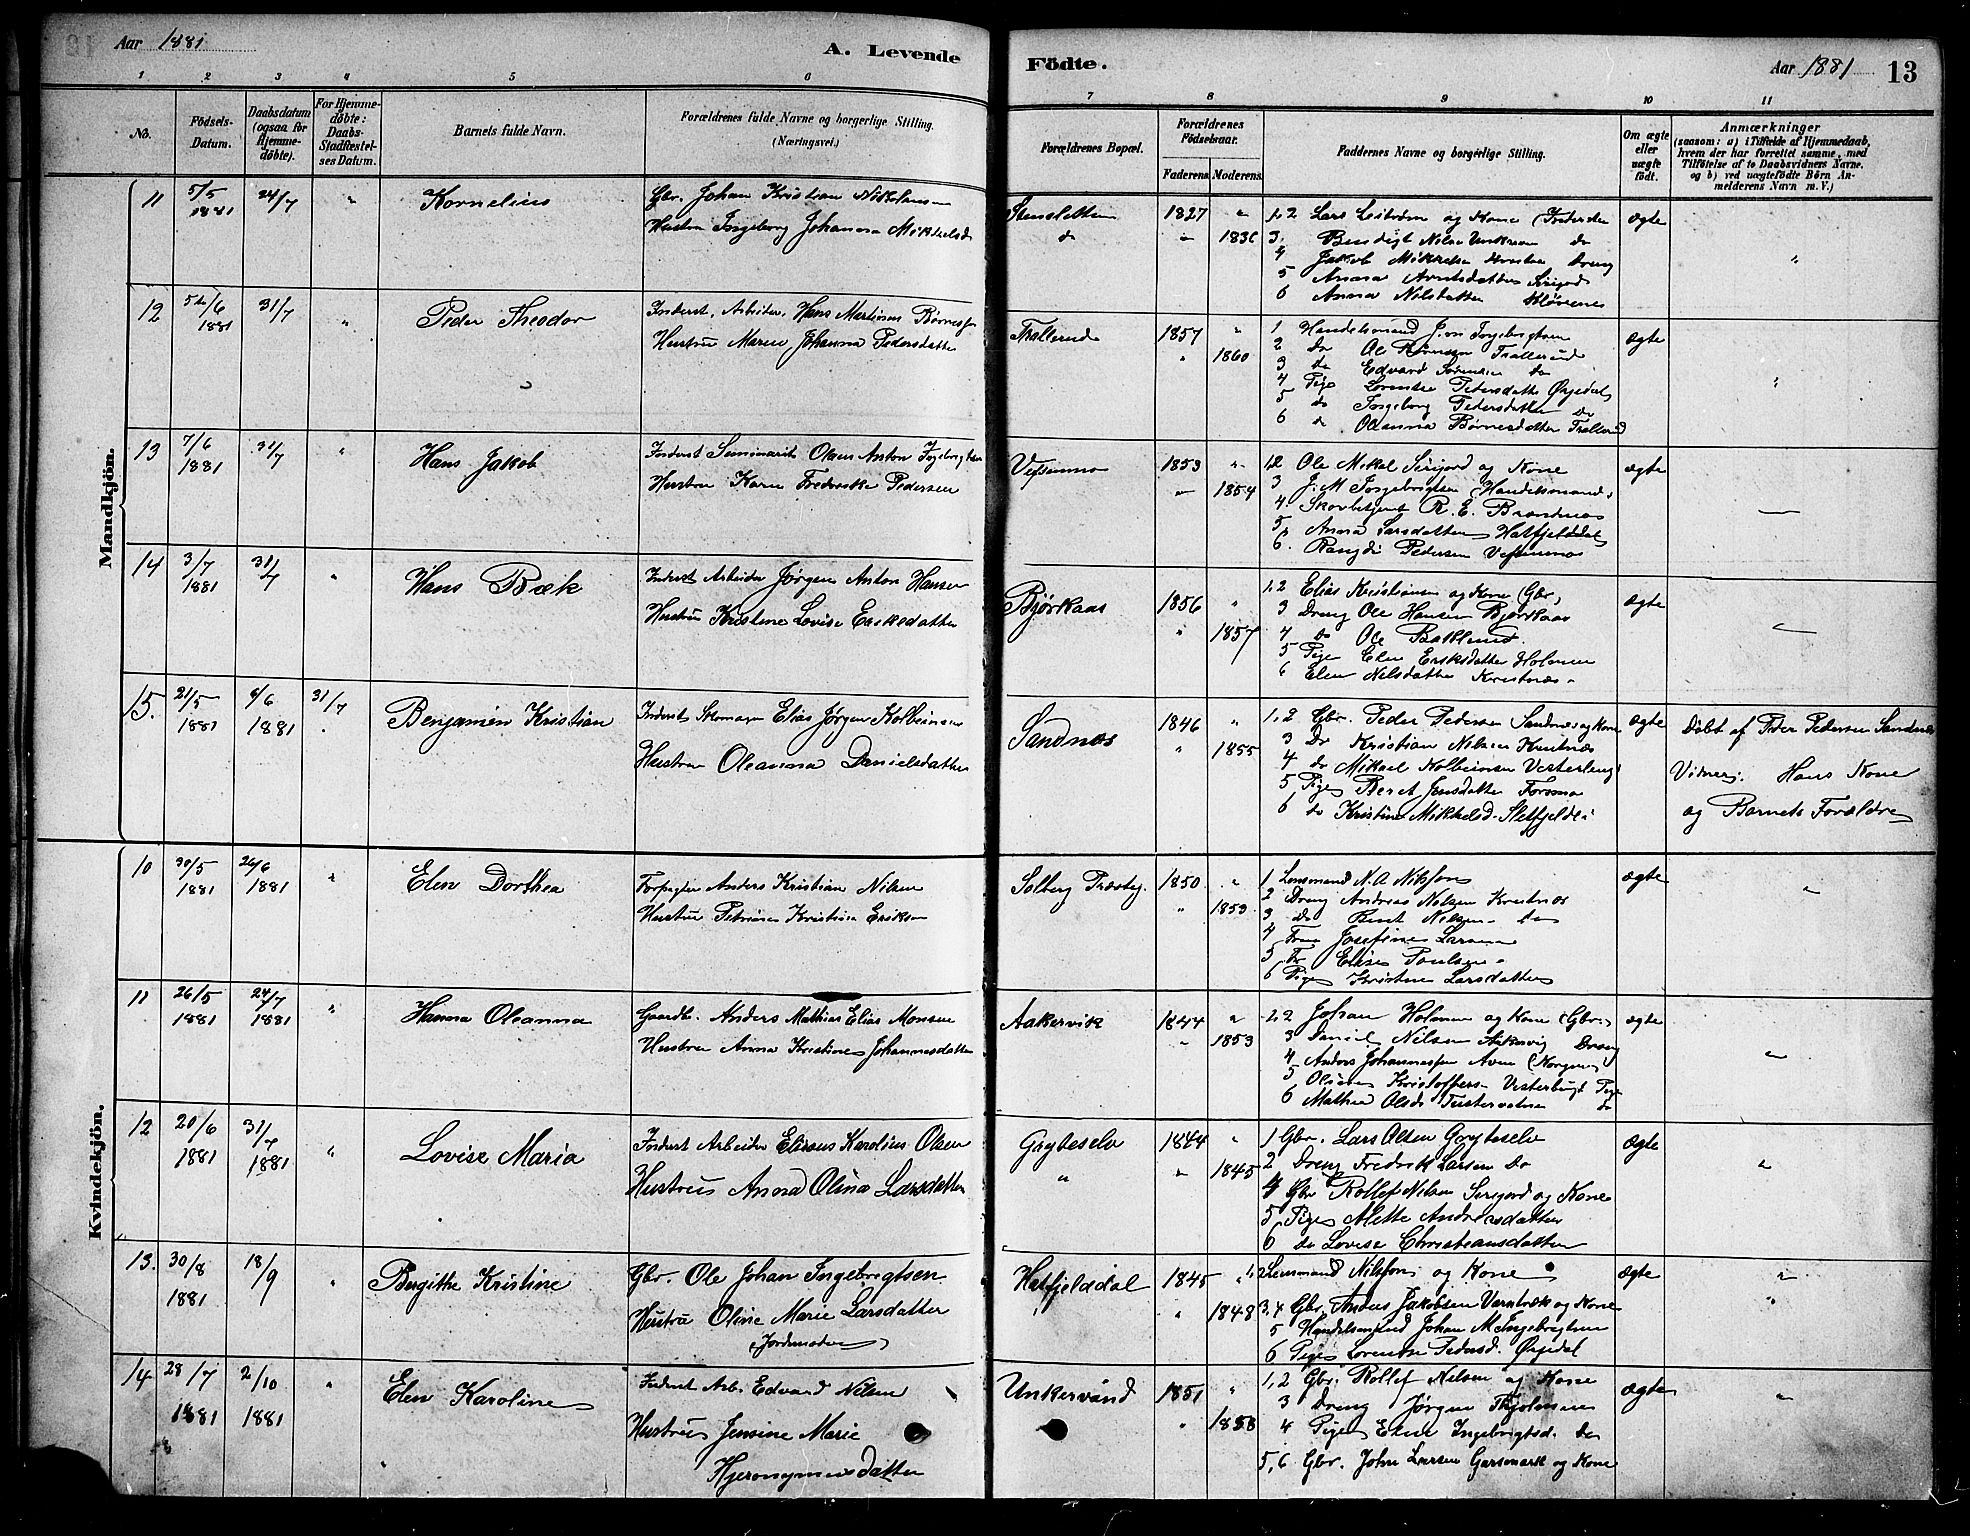 Aar 1881
A. Levende Födte.
Aar 1881 13
1 2 3 4 5 6 7 8 9 10 11
No.
Födsels-Datum.
Daabsdatum (ogsaa for Hjemme-döbte).
For Hjemme-döbte: Daabs-Stadfæstel-ses Datum.
Barnets fulde Navn.
Forældrenes fulde Navne og borgerlige Stilling.
(Næringsvei.)
Forældrenes Bopæl.
Forældrenes Födselsaar.
Faderens. Moderens.
Faddernes Navne og borgerlige Stilling.
Om ægte eller uægte födt.
Anmærkninger
(saasom: a) i Tilfælde af Hjemmedaab,
hvem der har forrettet samme, med
Tilföielse af to Daabsvidners Navne.
og b) ved uægtefödte Börn An-
melderens Navn m. V.)
Mandkjön.
11 5/5 1881 24/7 " Kornelius
Gbr. Johan Kristian
Hustru Ingeborg Johanna
1827 "
do " 1836
1,2 Lars og Kone
3. Bendigt Nilsen do
4 Jakob Dreng
5 Anna Arntsdatter
6 Anna Nilsdatter
ægte "
12 5/6 1881 31/7 " Peder Theodor
Inderst, Arbeider, Hans Martinus
Hustru Maren Johanna Pedersdatter
Trallerud 1857 "
" 1860
1 Handelsmand
2 Do Ole Trallerud
3 do Edvard Sørensen do
4 Pige Lorentse Pedersdatter Ørjedal
5 do Ingeborg Pedersdatter do
6 do Oleanna Børnesdatter Trallerud
ægte "
13 7/6 1881 31/7 " Hans Jakob
Inderst Seminarist Olaus Anton
Hustru Karen Fredrikke Pedersen
1853 "
" 1854
1,2 Ole Mikal og Kone
3 J. M Ingebrigtsen (Handelsmand)
4. Skovbetjent R. E. Brandmo
5 Anna Larsdatter Hatfjelddal
6. Pedersen
ægte
14 3/7 1881 31/7 " Hans Bæk
Inderst Arbeider Jørgen Anton Hansen
Hustru Kristine Lovise Eriksdatter
Bjørkaas 1856 "
" 1857
1,2 Elias Kristiansen og Kone (Gbr)
3 Dreng Ole Hansen Bjørkaas
4 do Ole Baklund.
5 Pige Elen Eriksdatter Holmen
6 Elen Nilsdatter
ægte
15. 21/5 1881 6/6 1881 31/7 Benjamin Kristian
Inderst Skomager Elias Jørgen Kolbeinsen
Hustru Oleanna Danielsdatter
Sandnes 1846 "
" 1855
1,2 Gbr. Peder Pedersen Sandnes og Kone
3 Do Kristian Nilsen
4 do Mikael Kolbeinsen
5 Pige Beret Jensdatter Forsmo
6 do Kristine Mikkelsd.
ægte
Døbt af Peder Pedersen Sandnes
Vidner: Hans Kone
og Barnets Forældre
Kvindekjön.
10 30/5 1881 26/6 1881 " Elen Dorthea
Forpagter Anders Kristian Nilsen
Hustru Kristine Eriksen
Solberg 1850 "
" 1853
1 Lensmand N. A
2 Dreng Andreas Nilsen
3 Do Bent Nilsen do
4 Fru Josefine Larsen
5 Fr Elise Poulsen
6 Pige Kristine Larsdatter
ægte "
11 26/5 1881 24/7 1881 " Hanna Oleanna
Gaardb. Anders Mathias Elias Monsen
Hustru Anna Kristine Johannesdatter
Aakervik 1844 "
" 1853
1,2 Johan Holmen og Kone (Gbr.)
3 Daniel Nilsen Aakervig Dreng
4 Anders Johannessen
5 Pige
6 Mathea Olsd. do
ægte "
12 20/6 1881 31/7 1881 " Lovise Maria
Inderst Arbeider Elisæus Karolius Olsen
Hustru Anna Olina Larsdatter
Grybeselv 1844 "
" " 1845
1 Gbr. Lars Olsen Grybeselv
2 Dreng Fredrik Larsen Do
4 Gbr Rollef Nilsen og Kone
5 Pige Mette Andreasdatter
6 do Lovise Christiansdatter
ægte "
13. 30/8 1881 18/9 " Bergithe Kristine
Gbr. Ole Johan Ingebrigtsen
Hustru Oline Marie Larsdatter
(Jordemoder)
Hatfjelddal 1845 "
" " 1848
1,2 Lensmand og Kone
3,4 Gbr. Anders Jakobsen Varntræsk og Kone
5 Handelsmand Johan M Ingebrigtsen
6 Pige Lorentse Pedersd. Ørjedal
ægte "
14 28/7 1881 2/10 1881 " Elen Karoline
Inderst Arb. Edvard Nilsen
Hustru Jensine Marie
Hjeronymusdatter
Unkervand 1851 "
" 1858
1,2 Gbr. Rollef Nilsen og Kone
3 Dreng Jørgen
4 Pige Elen Ingebrigtsd. do
5,6 Gbr. John Larsen Garsmark og Kone
ægte "